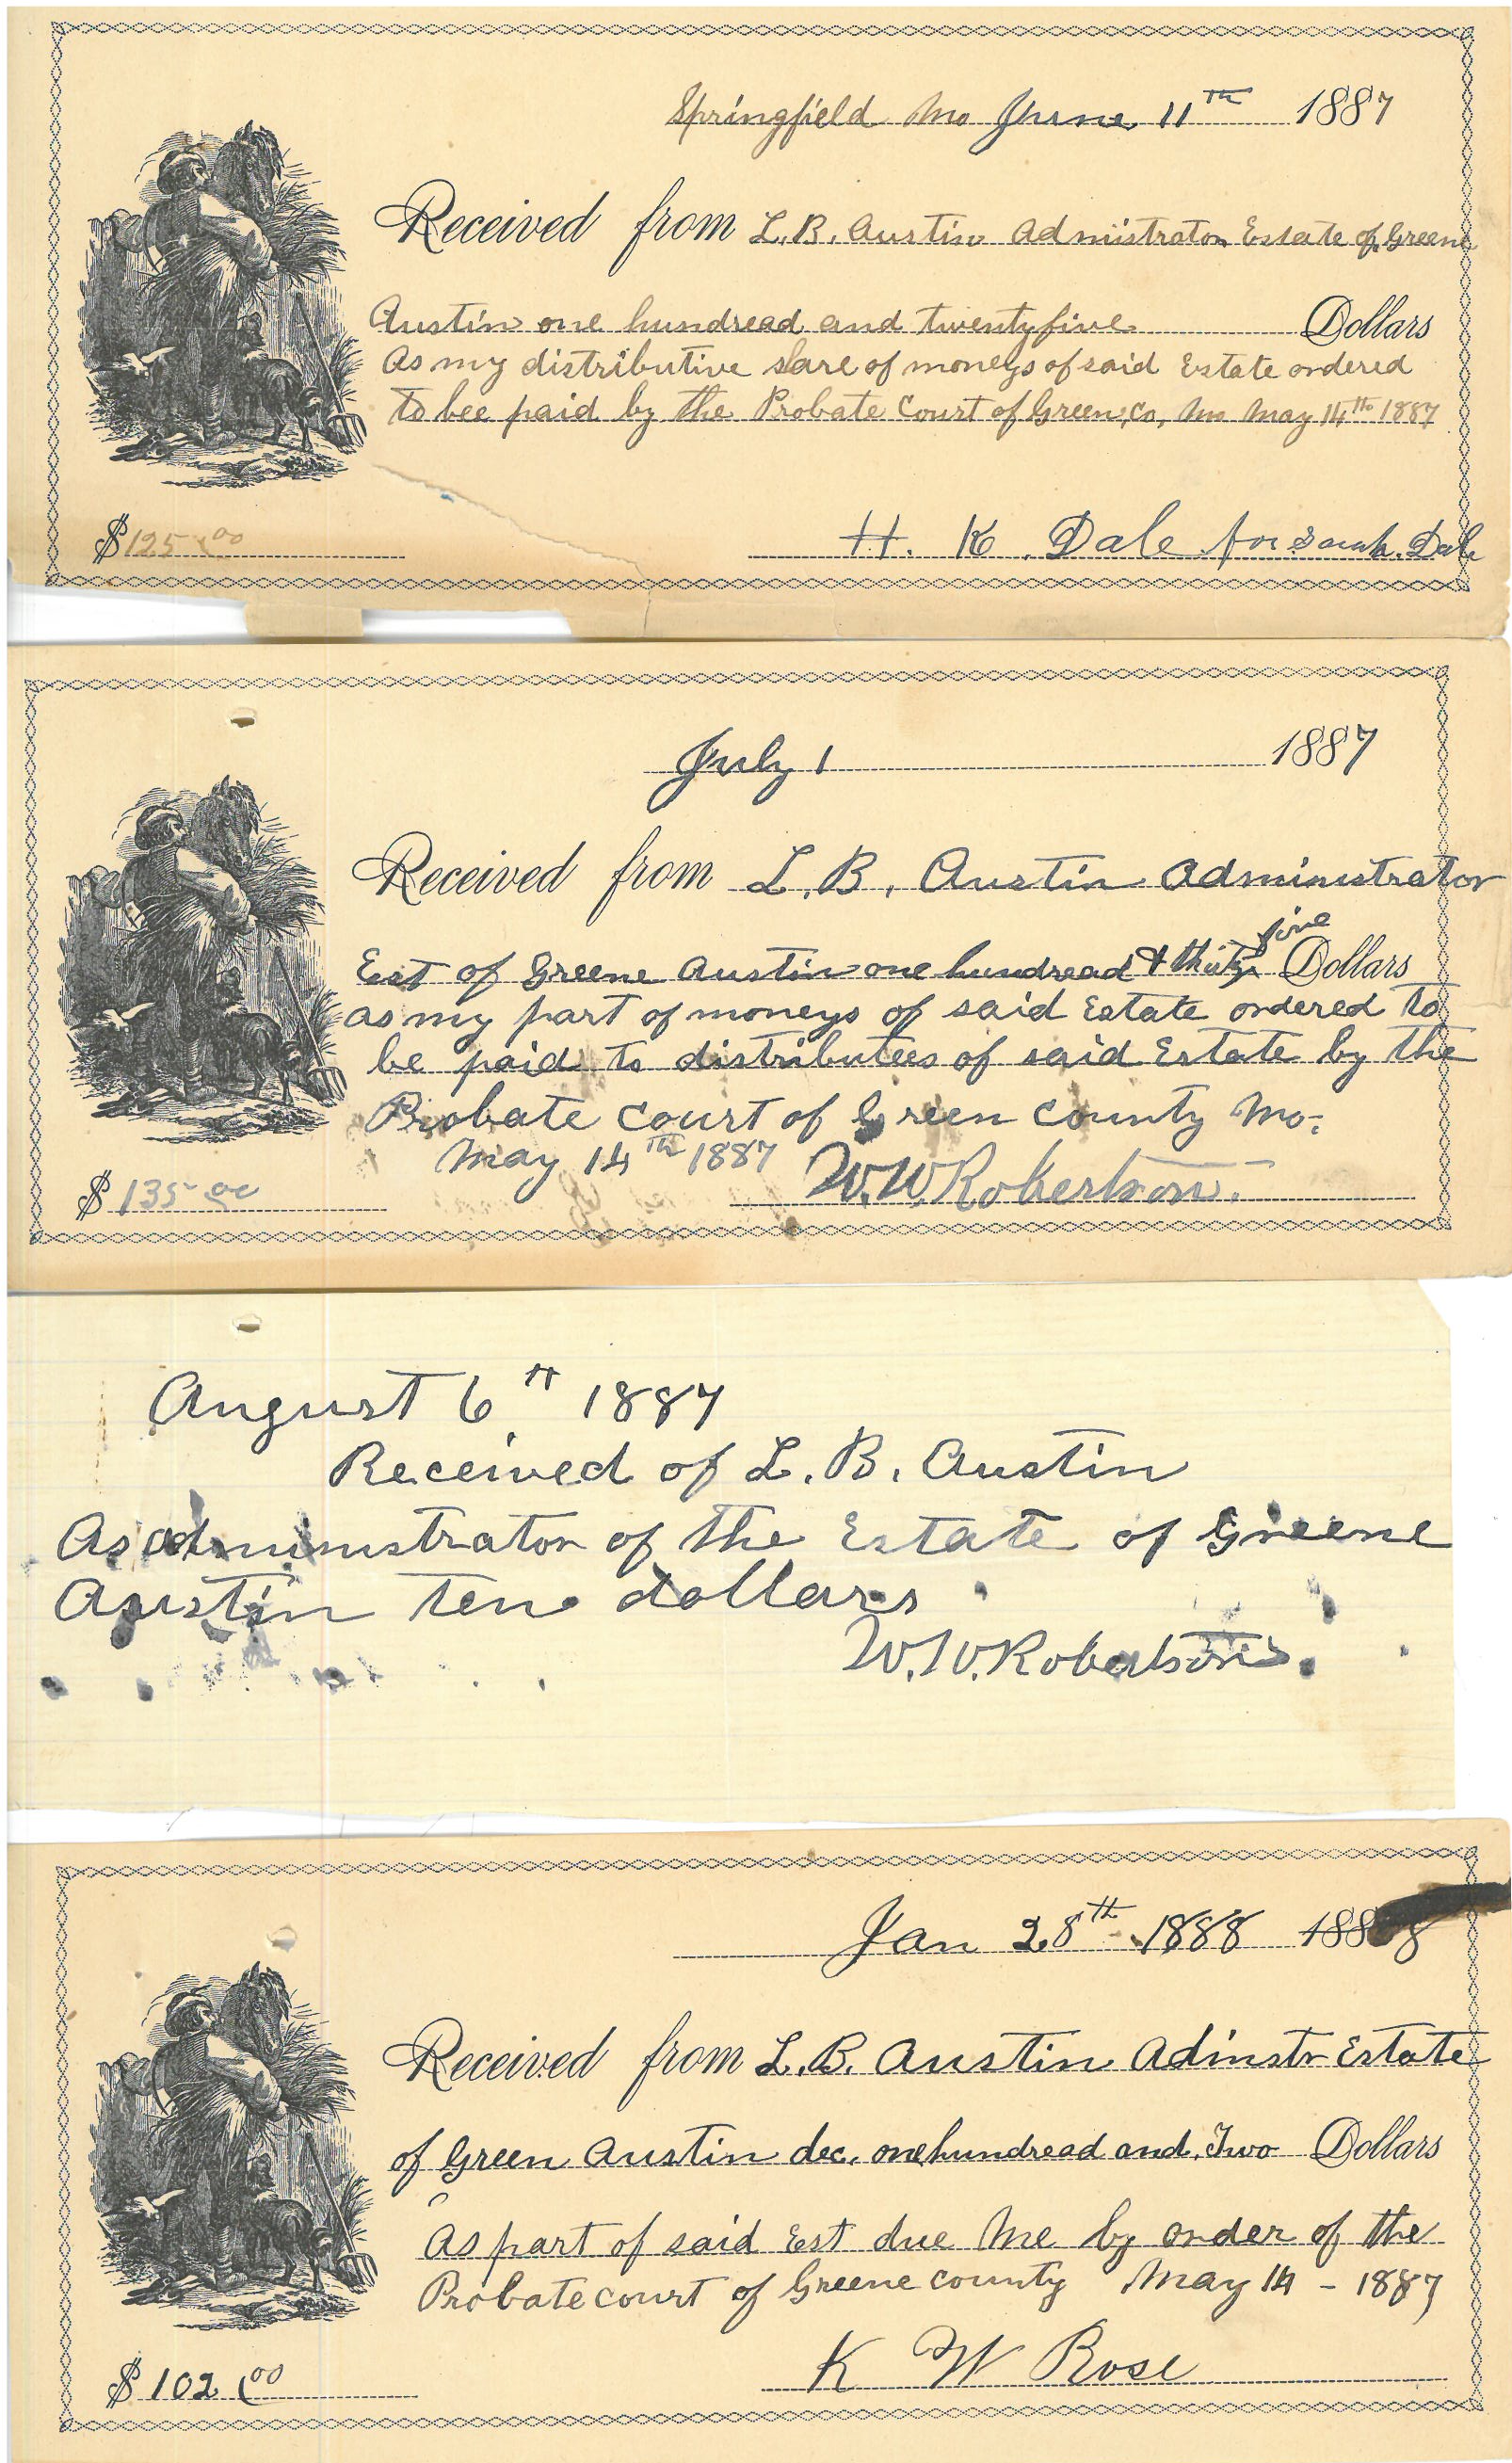 Springfield Mo June 11th 1887
Received from L.B. Austin Admistrator Estate of Greene
Austin one hundread and twentyfive Dollars
As my distributive share of moneys of said Estate ordered
to bee paid by the Probate Court of Green, Co, Mo May 14th 1887
$125.00
H. K. Dale for Sarah. Dale
July 1 1887
Received from L. B. Austin Administrator
Est of Greene Austin one hundread & thirty five Dollars
as my part of moneys of said Estate ordered to
be paid to distributees of said Estate by the
Probate Court of Green County Mo.
May 14th 1887
$135.00
W.W. Robertson.
August 6th 1887
Received of L. B. Austin
As administrator of the Estate of Greene
Austin ten dollars
W.W. Robertson.
Jan 28th 1888 1888
Received from L.B. Austin Adinstr Estate
of Green Austin dec. one hundread and Two Dollars
As part of said Est due Me by order of the
Probate court of Greene county May 14 - 1887
K W Rose
$102.00